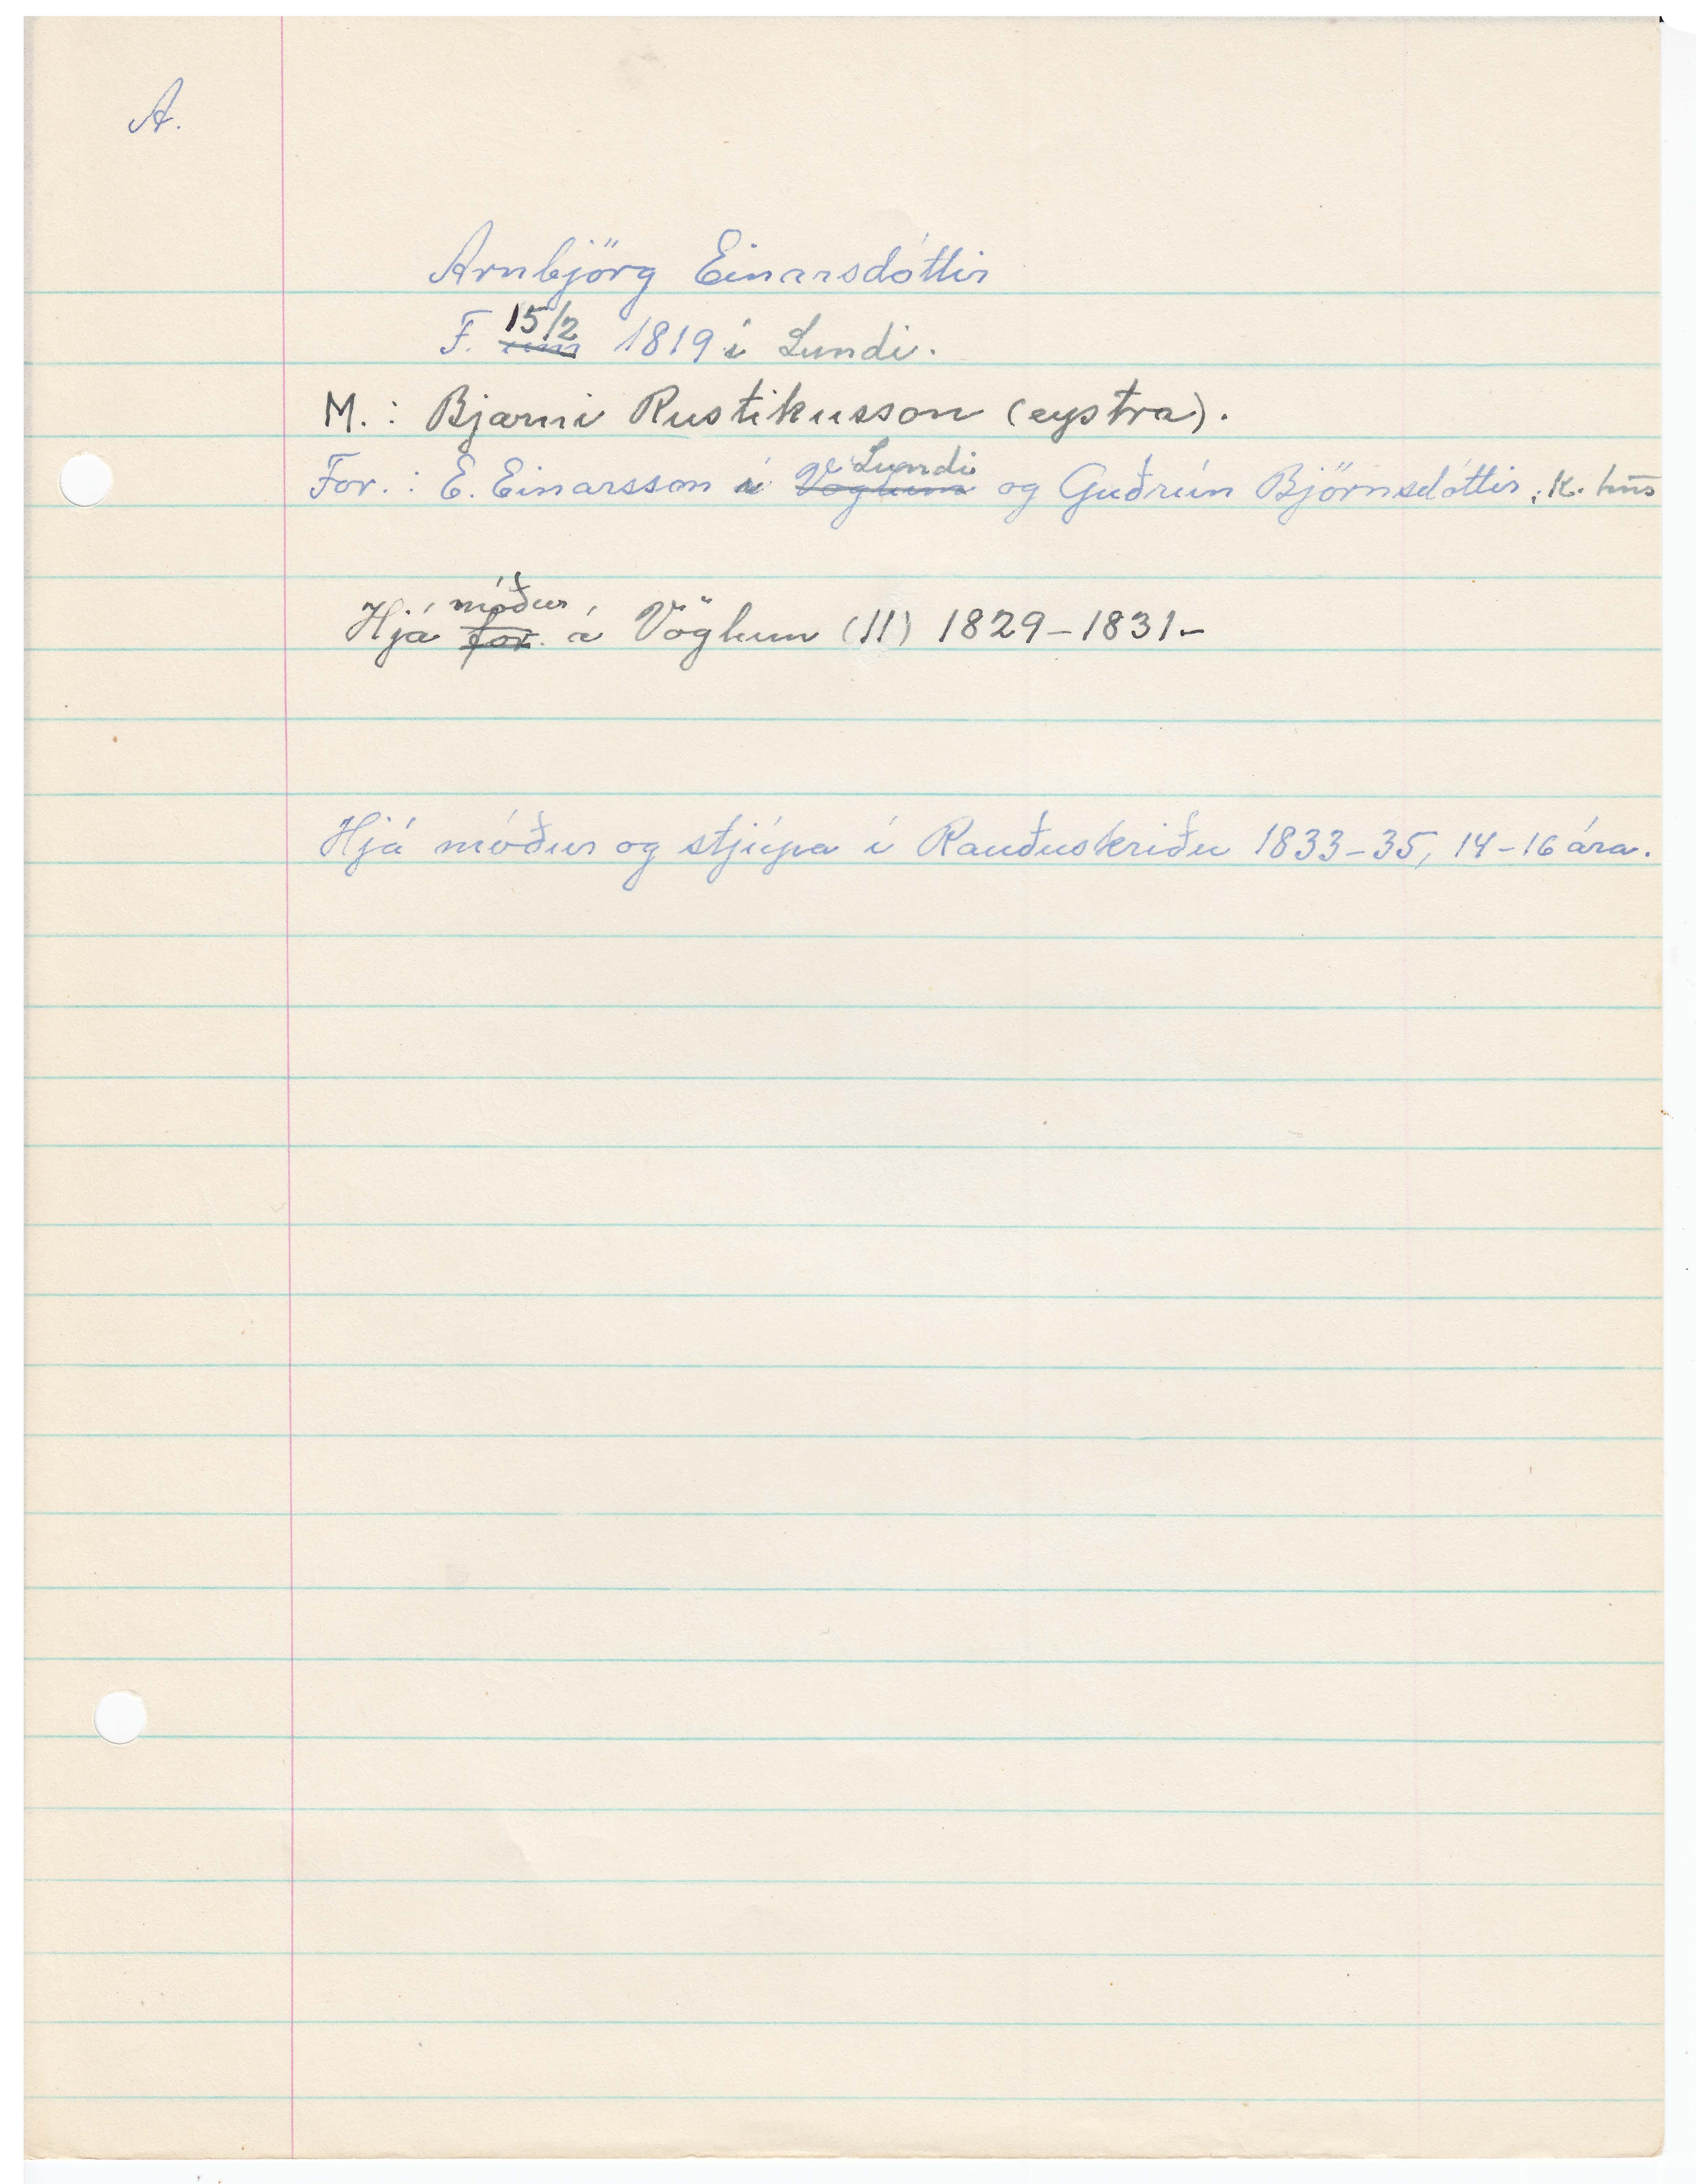 A.
Arnbjörg Einarsdóttir
F. 15/2 1819 í Lundi.
M.: Bjarni Rustikusson (eystra).
For.: E. Einarsson í Vöglum Lundi og Guðrún Björnsdóttir, k. hns
Hjá for. móður á Vöglum (II) 1829-1831-
Hjá móður og stjúpa í Rauðuskriðu 1833-35, 14-16 ára.